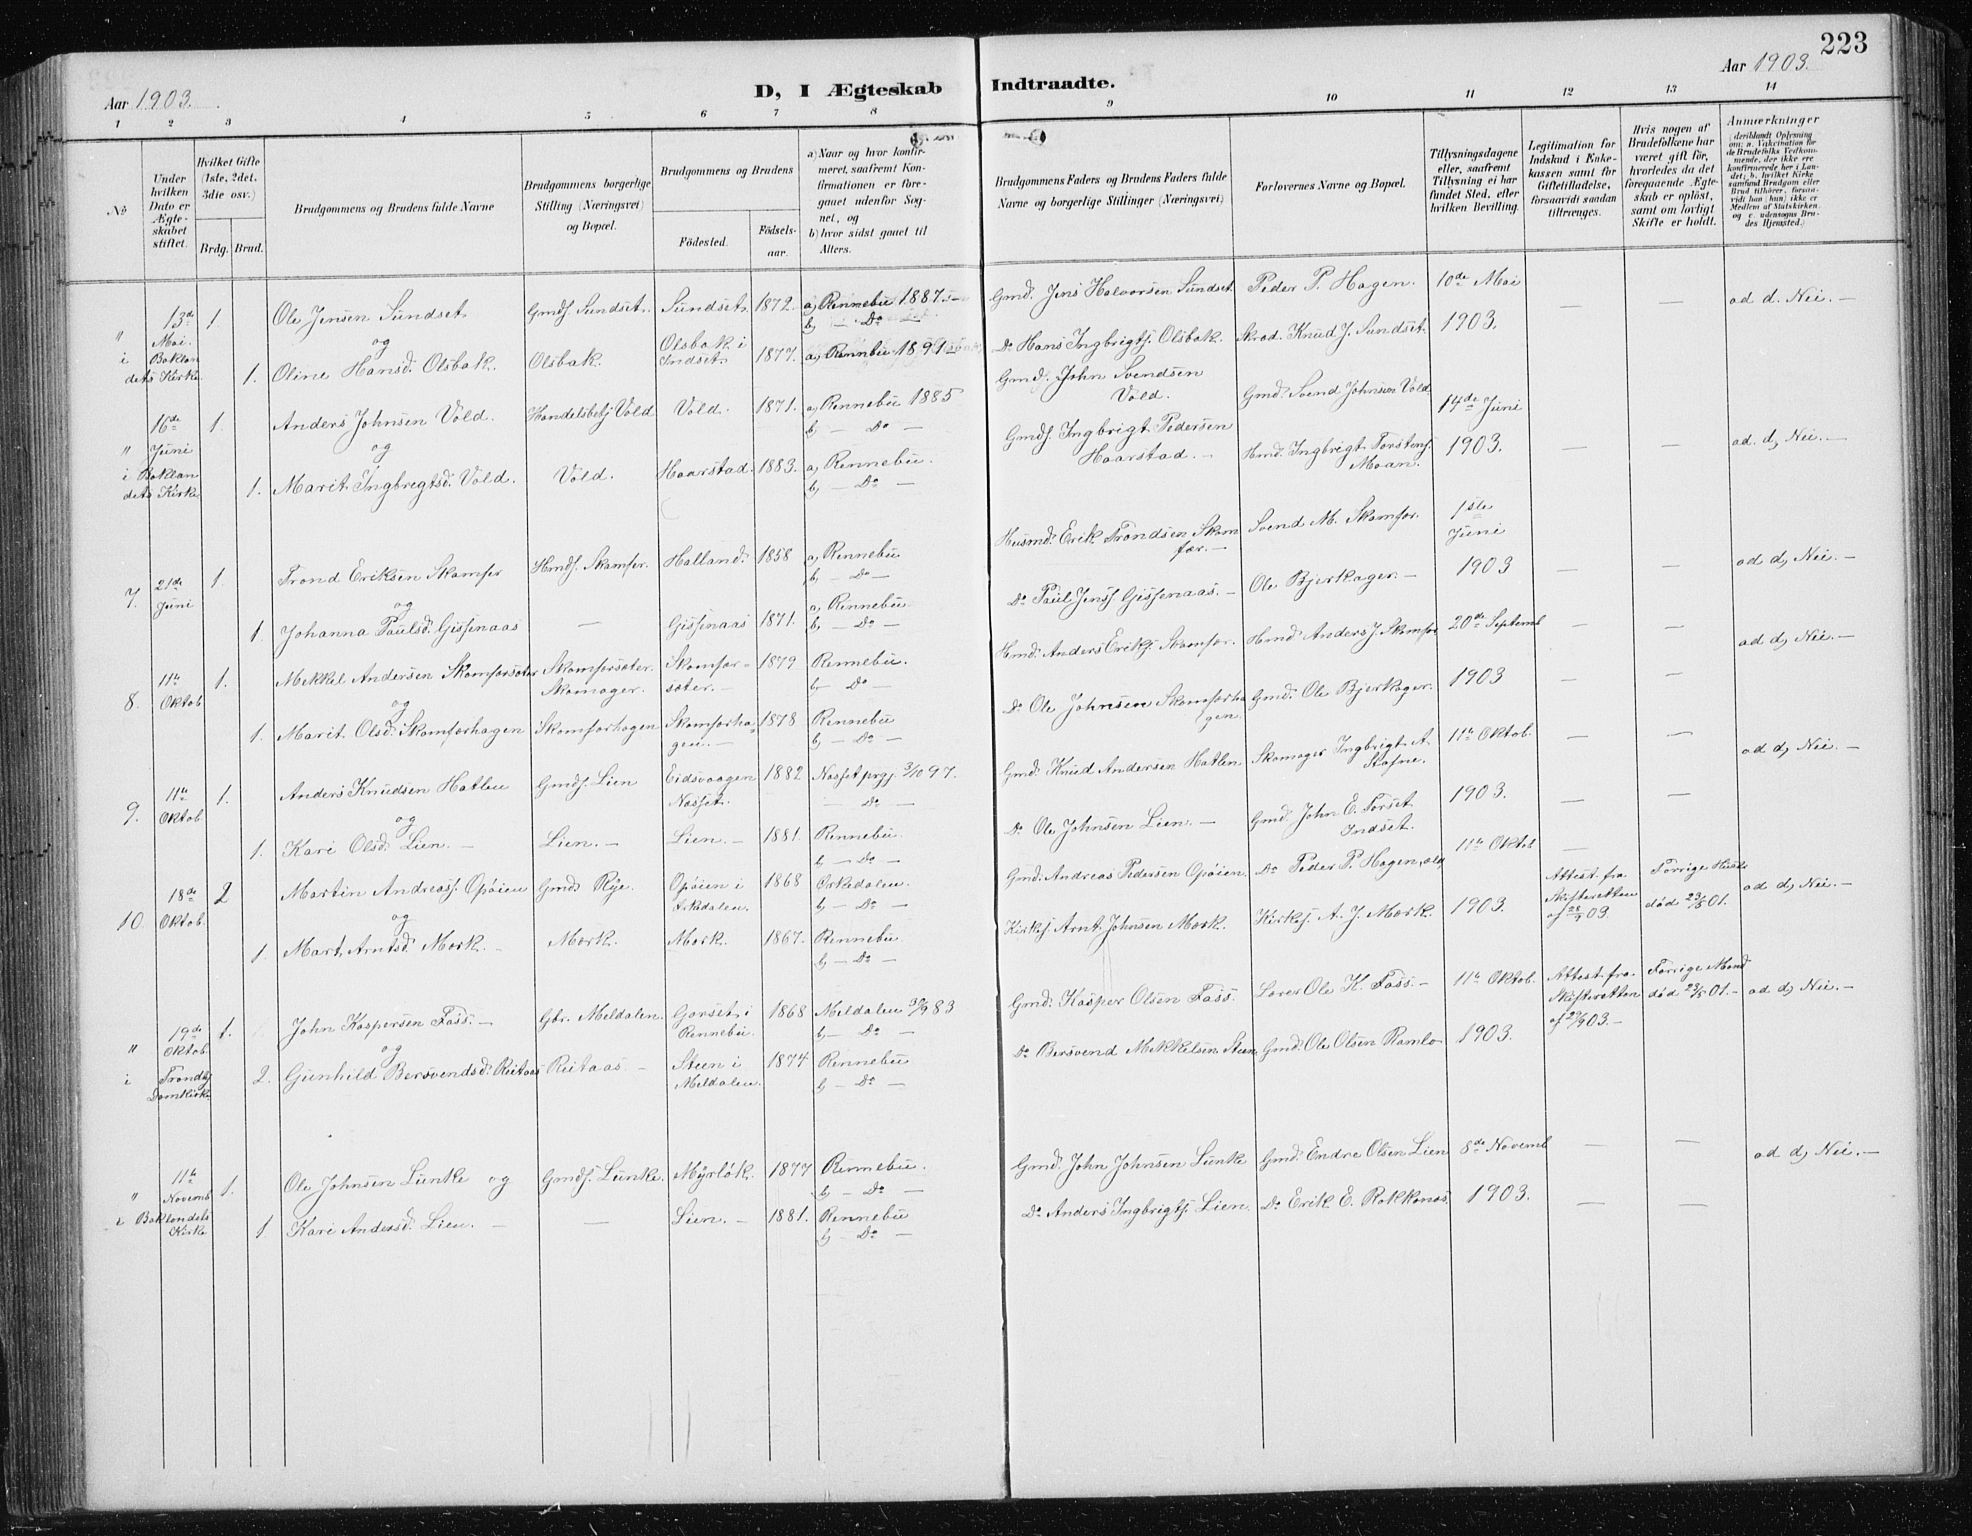 223
Aar 1903.
D, I Ægteskab Indtraadte.
Aar 1903.
1 2 3 4 5 6 7 8 9 10 11 12 13 14
No
Under hvilken Dato er Ægteskabet stiftet.
Hvilket Gifte (1ste, 2det, 3die osv.)
Brdg. Brud.
Brudgommens og Brudens fulde Navne
Brudgommens borgerlige Stilling (Næringsvei) og Bopæl.
Brudgommens og Brudens
Födested.
Födselsaar.
a) Naar og hvor konfirmeret, saafremt Konfirmationen er foregaaet udenför Sognet, og
b) hvor sidst gaaet til Alters.
Brudgommens Faders og Brudens Faders fulde Navne og borgerlige Stillinger (Næringsvei)
Forlovernes Navne og Bopæl.
Tillysningsdagene eller, saafremt Tillysning ei har fundet Sted, efter hvilken Bevilling.
Legitimation for Indskud i Enkekassen samt for Giftetilladelse, forsaavidt saadan tiltrænges.
Hvis nogen af Brudefolkene har været gift för, hvorledes da det foregaaende Ægteskab er oplöst, samt om lovligt Skifte er holdt.
Anmærkninger
(deriblandt Oplysning om: a. Vakcination for de Brudefolks Vedkommende, der ikke ere konfirmerede her i Landet; b. hvilket Kirkesamfund Brudgom eller Brud tilhörer, forsaavidt han (hun) ikke er Medlem af Statskirken, og c. udensogns Brudes Hjemsted.)
" 13de Mai i Baklandets Kirke. 1 Ole Jensen Sundset Gmdf. Sundset. Sundset. 1872. a) Rennebu 1887. b) — Do — Gmd. Jens Halvorsen Sundset Peder P. Hagen. 10de Mai — — ad d. Nei. —
og
1. Oline Hansd. Olsbak. Olsbak. Olsbak i Indset. 1877. a) Rennebu 1891 Do Hans Ingbrigtf. Olsbak. Skrad. Knud J. Sundset. 1903.
" 16de Juni i Baklandets Kirke 1. Anders Johnsen Vold. Handelsbetj Vold Vold. 1871. a) Rennebu 1885 b) — Do — Gmd. John Svendsen Vold. Gmd. Svend Johnsen Vold 14de Juni
og
1. Marit Ingbrigtsd. Vold. Vold. Haarstad. 1883. a) Rennebu. b) — Do — Gmdf. Ingbrigt Pedersen Haarstad. — Hmd. Ingbrigt Torstensf. Moan. 1903. — — ad. d, Nei. —
7. 21de Juni 1. Trond Eriksen Skamfer Hmdf. Skamfer. Halland. 1858 a) Rennebu b) — Do — Husmd. Erik Trondsen Skamfær. — Svend M. Skamfer. 1ste Juni
og
1. Johanna Paulsd. Gissenaas — Gissenaas 1871. a) Rennebu. b) — Do — Do Paul Jensf. Gissenaas. — Ole Bjerkager. — 1903 — — ad d, Nei. —
8. 11te Oktob 1. Mikkel Andersen Skamforsæter Skamforsæter. Skomager. Skamforsæter. — 1879 Rennebu. b — Do — Hmd. Anders Erikf. Skamfor. Hmd. Anders J. Skamfor 20de Septemb — — ad d, Nei. —
og
1. Marit Olsd. Skamforhagen Skamforhagen Skamforhagen. — 1878 Rennebu b) — Do — Do Ole Johnsen Skamforhagen Gmd. Ole Bjerkager. 1903 — —
9. 11te Oktob 1. Anders Knudsen Hatlen Gmdf. Lien Eidsvaagen Nesset. 1882 Nesset prgj. 3/10 97. — Do — Gmd. Knud Andersen Hatlen Skomager Ingbrigt A. Stafne. 11te Oktob. — — ad d, Nei. —
og
1. Kari Olsd. Lien. — Lien. — Lien. — 1881. Rennebu. b — Do — Do Ole Johnsen Lien. — Gmd. John E. Forset Indset. 1903. — —
10. 18de Oktob. 2 Martin Andreasf. Opøien Gmd. Rye. Opøien i Orkedalen. 1868 Orkedalen. b — Do — Gmd. Andreas Pedersen Opøien Do Peder P. Hagen, 11te Oktob Attest fra Skifteretten af 28/9 03. Forrige Hustr død 23/5 01. ad d, Nei. —
og
1. Marit Arntsd. Mærk. — Mærk. Mærk. 1867. Rennebu. b — Do — Kirks. Arnt Johnsen Mærk. Kirks. A. J. Mærk. 1903.
" 19de Oktob. i Trondhj Domkirke 1. John Kaspersen Fass. — Gbr. Meldalen. Gorset i Rennebu. 1868 Meldalen 30/9 83 b — Do — Gmd. Kasper Olsen Fass. Lærer Ole K. Fass. — 11te Oktob. Attest fra Skifteretten af 29/9 03. — Forrige Mand død 23/5 01. — ad d, Nei. —
og
2. Gunhild Bersvendsd. Reitaas Reitaas — Steen i Meldalen. 1874 Rennebu b) — Do — Do Bersvend Mikkelsen Steen Gmd. Ole Olsen Ramlo 1903.
" 11te Novemb i Baklandets Kirke 1. Ole Johnsen Lunke og Gmdf. Lunke. Myrløk. 1877 Rennebu. b — Do — Gmd. John Johnsen Lunke Gmd. Endre Olsen Lien 8de Novemb — — ad d, Nei. —
1. Kari Andersd. Lien. — — Lien. — 1881. Rennebu b — Do — Do Anders Ingbrigtf. Lien. Do Erik E. Rokkenes. 1903. — —